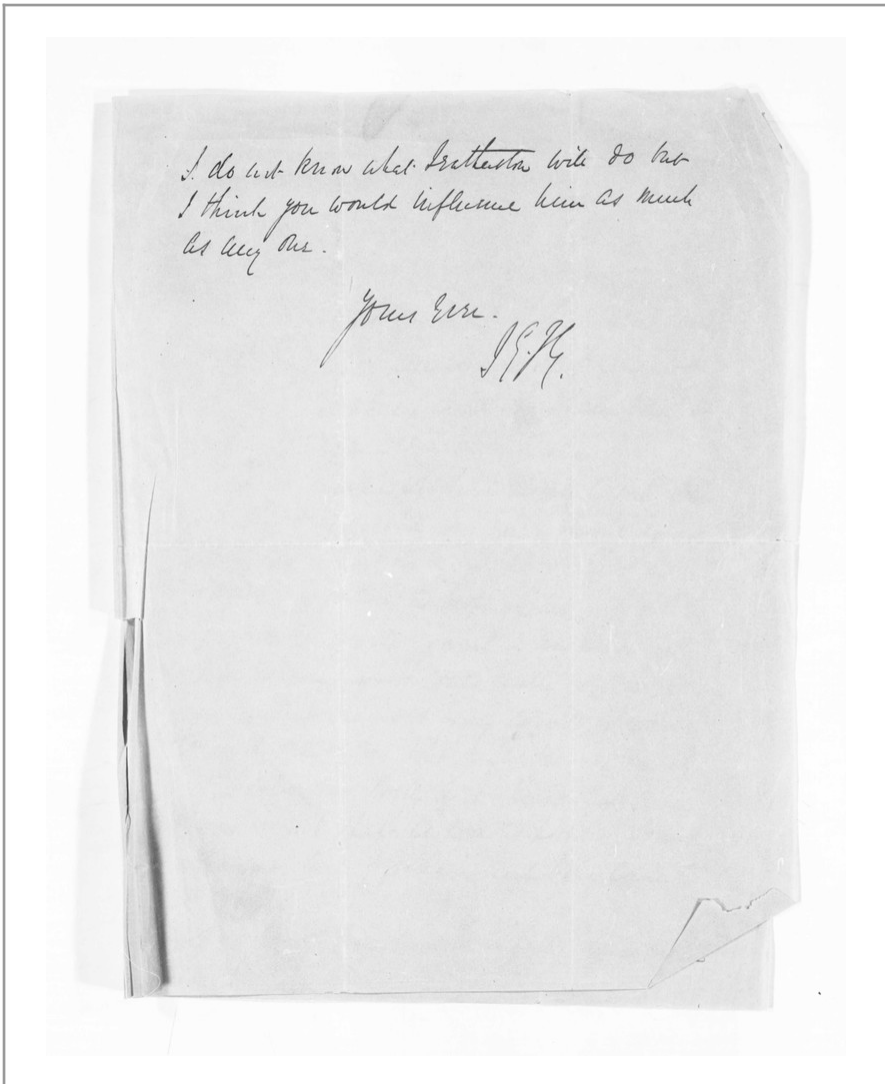 I do not know what Featherston will do but
I think you would influence him as much
as any one.
Yours Ever.